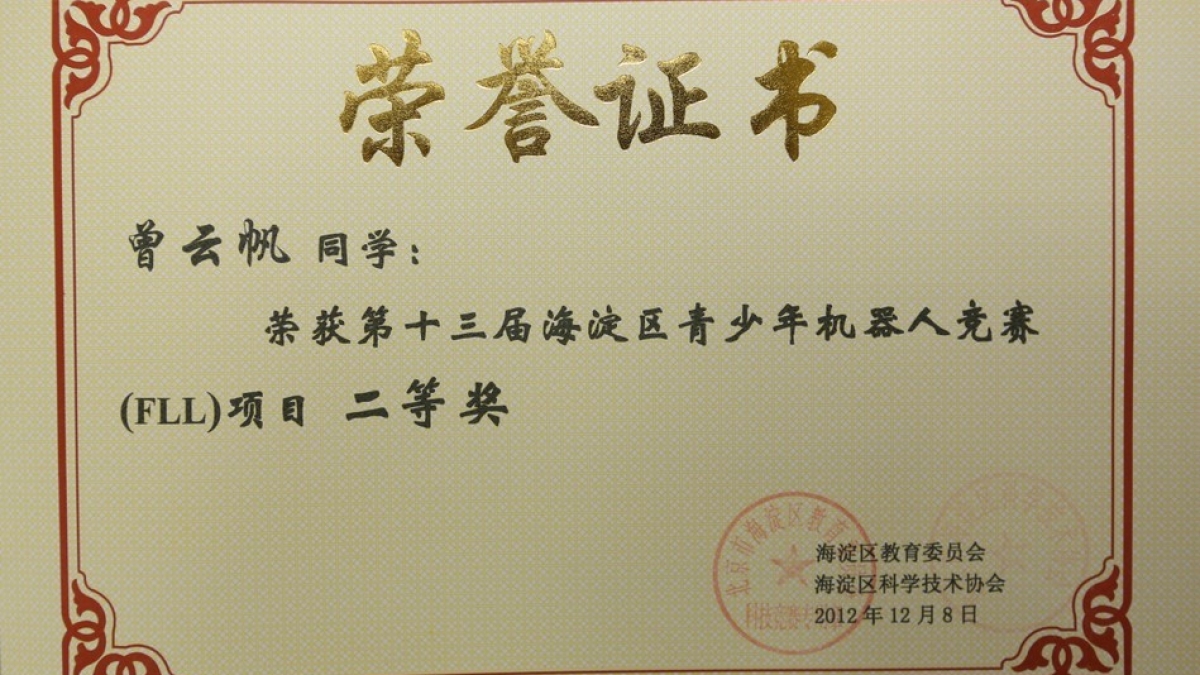 荣誉证书
曾云帆 同学：
荣获第十三届海淀区青少年机器人竞赛
(FLL)项目 二等奖
北京市海淀区教育
海淀区教育委员会
海淀区科学技术协会
2012年12月8日